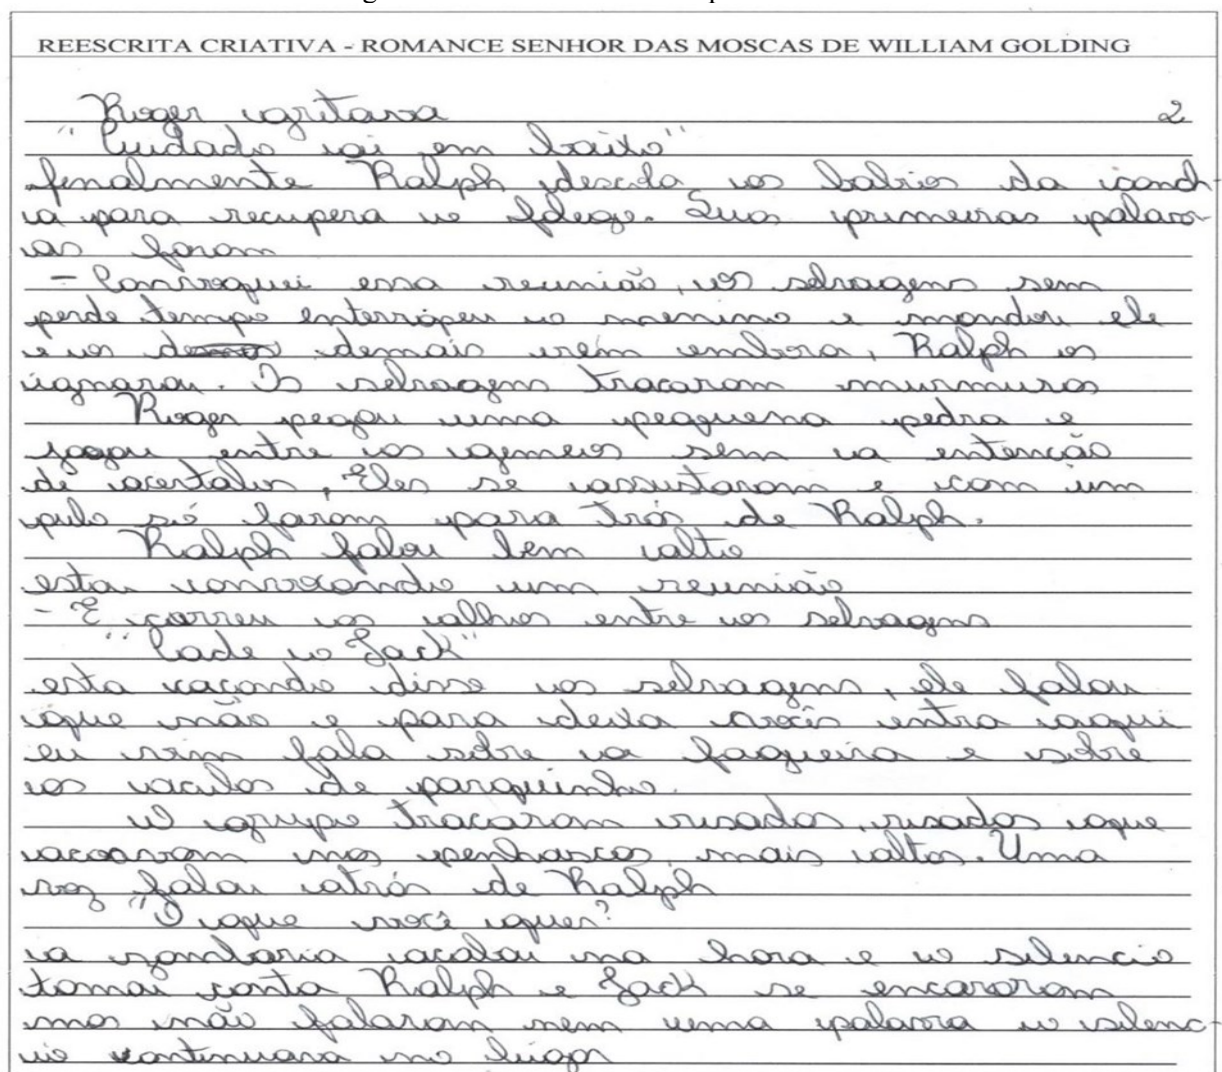 REESCRITA CRIATIVA - ROMANCE SENHOR DAS MOSCAS DE WILLIAM GOLDING
Roger gritava 2
"Cuidado ai em baixo"
finalmente Ralph descola os labios da conch-
a para recupera o folego. Suas primeiras palavr-
as foram
- Convoquei essa reunião, os selvagens sem
perde tempo enterropeu o menino e mandou ele
e os demais irem embora, Ralph os
ignorou. Os selvagens trocaram murmuros
Roger pegou uma pequena pedra e
jogou entre os gemeos sem a entenção
de acertalos, Eles se assustaram e com um
pulo só foram para trás de Ralph.
Ralph falou bem alto
estou convocando um reunião
- E correu os olhos entre os selvagens
"Cade o Jack"
esta caçando disse os selvagens, ele falou
que não e para deixa vocês entra aqui
eu vim fala sobre a fogueira e sobre
os oculos de porquinho.
O grupo trocaram risadas, risadas que
ecoavam nos penhascos mais altos. Uma
voz falou atrás de Ralph
"O que você quer?
a zombaria acabou na hora e o silencio
tomou conta Ralph e Jack se encararam
mas não falaram nem uma palavra o silenc-
io continuava no lugar